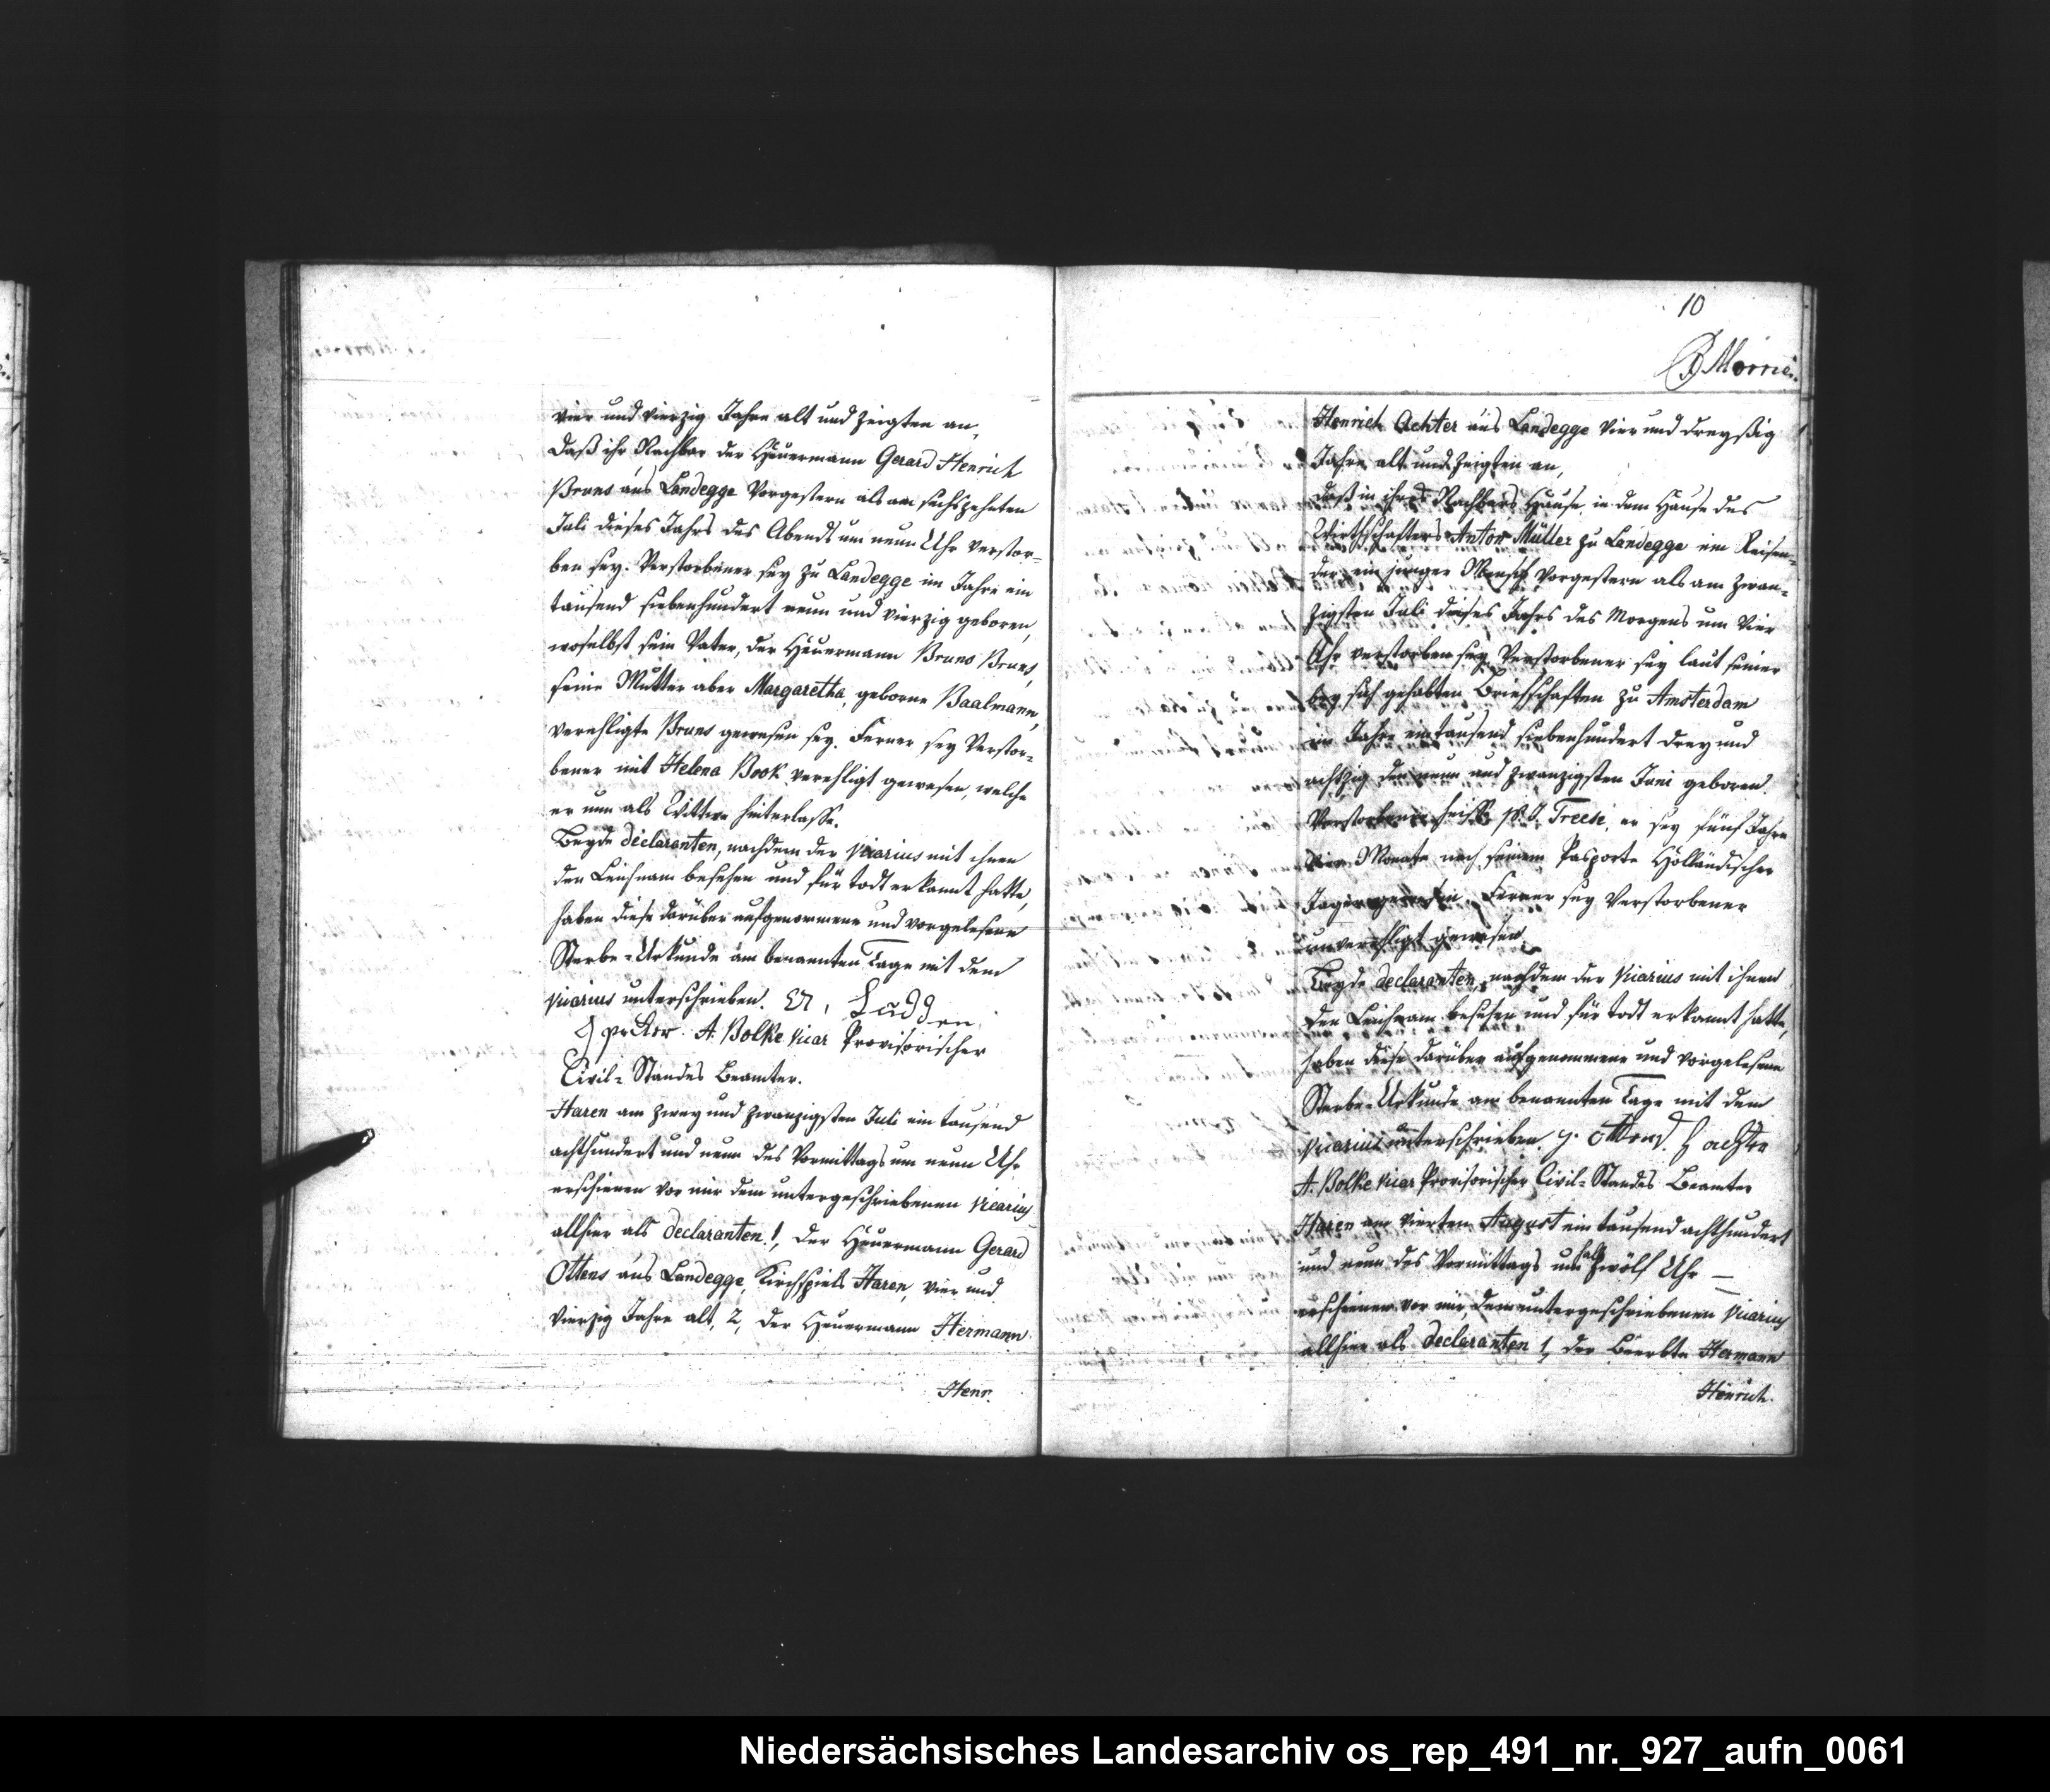 vier und vierzig Jahre alt und zeigten an,
daß ihr Nachbar der Heuermann Gerard Henrich
Bruns aus Landegge vorgestern als am sechszehnten
Juli dieses Jahrs des Abends um neun Uhr verstor=
ben sey. Verstorbener sey zu Landegge im Jahre ein
tausend siebenhundert neun und vierzig geboren,
woselbst sein Vater, der Heuermann Bruno Bruns,
seine Mutter aber Margaretha, geborne Baalmann,
verehligte Bruns gewesen sey. Ferner sey Verstor=
bener mit Helena Book verehligt gewesen, welche
er nun als Wittwe hinterlasse.
Beyde declaranten, nachdem der Vicarius mit ihnen
den Leichnam besehen und für todt erkannt hatte,
haben diese darüber aufgenommene und vorgelesene
Sterbe=Urkunde am benannten Tage mit dem
Vicarius unterschrieben.
A. Bolke Vicar Provisorischer
Civil=Standes Beamter.
Haren am zwey und zwanzigsten Juli ein tausend
achthundert und neun des Vormittags um neun Uhr
erschienen vor mir dem untergeschriebenen Vicarius
allhier als declaranten 1, der Heuermann Gerard
Ottens aus Landegge, Kirchspiels Haren, vier und
vierzig Jahre alt, 2, der Heuermann Hermann
Henr.
10
Henrich Achter aus Landegge vier und dreyßig
Jahre alt und zeigten an,
daß in ihres Nachbars Hause, in dem Hause des
Wirthschafters Anton Müller zu Landegge ein Reisen=
der, ein junger Mensch vorgestern als am zwan=
zigsten Juli dieses Jahrs des Morgens um vier
Uhr verstorben sey. Verstorbener sey laut seiner
bey sich gehabten Briefschaften zu Amsterdam
im Jahre ein tausend siebenhundert drey und
achtzig den neun und zwanzigsten Juni geboren.
Verstorbener heiße P. J. Treese, er sey fünf Jahre
vier Monate nach seinem Pasporte Holländischer
Jäger gewesen. Ferner sey Verstorbener
unverehligt gewesen.
Beyde declaranten, nachdem der Vicarius mit ihnen
den Leichnam besehen und für todt erkannt hatte,
haben diese darüber aufgenommene und vorgelesene
Sterbe=Urkunde am benannten Tage mit dem
Vicarius unterschrieben. G. Ottens. H achter
A. Bolke Vicar Provisorischer Civil=Standes Beamter
Haren am vierten August ein tausend achthundert
und neun des Vormittags um halb zwölf Uhr —
erschienen vor mir, dem untergeschriebenen Vicarius
allhier als declaranten 1, der Beerbte Hermann
Henrich.
Niedersächsisches Landesarchiv os_rep_491_nr._927_aufn_0061